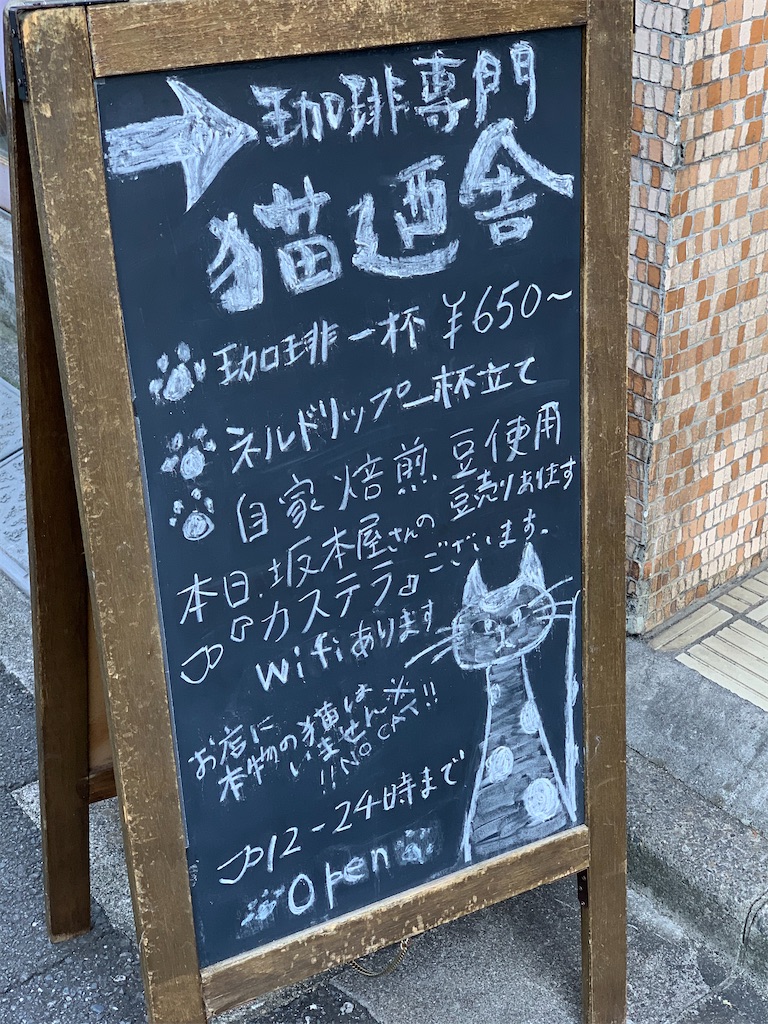 珈琲専門
猫廼舎
珈琲一杯 ¥650~
ネルドリップ一杯立て
自家焙煎豆使用
豆売りあります
本日、坂本屋さんの
『カステラ』ございます。
wifiあります
お店に
本物の猫は
いません※
!!NO CAT!!
12-24時まで
Open